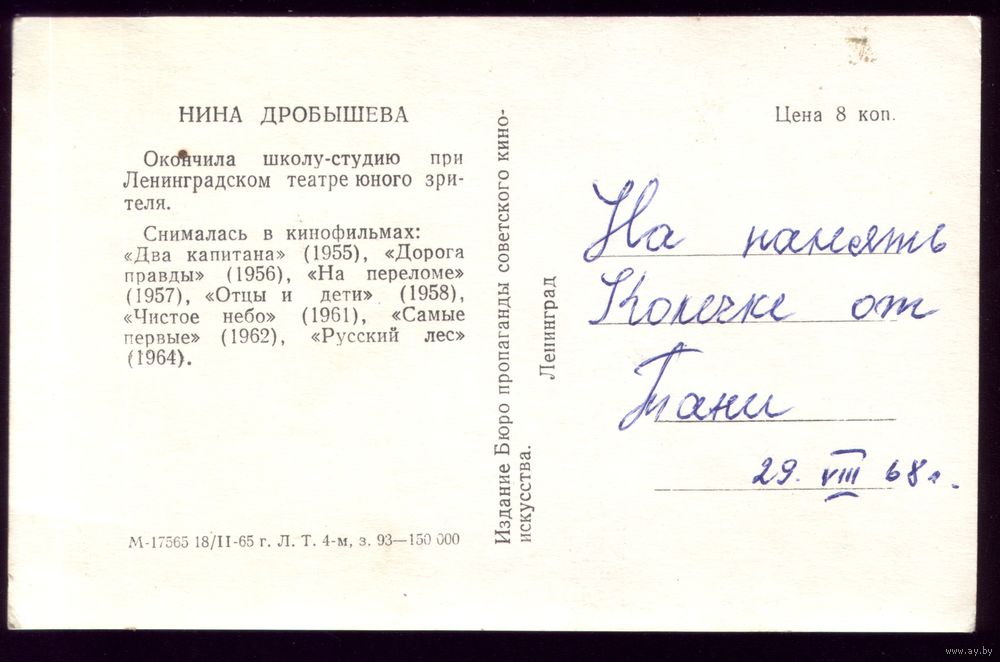 НИНА ДРОБЫШЕВА
Окончила школу-студию при
Ленинградском театре юного зри-
теля.
Снималась в кинофильмах:
«Два капитана» (1955), «Дорога
правды» (1956), «На переломе»
(1957), «Отцы и дети» (1958),
«Чистое небо» (1961), «Самые
первые» (1962), «Русский лес»
(1964).
М-17565 18/II-65 г. Л. Т. 4-м, з. 93—150 000
Издание Бюро пропаганды советского кино-
искусства.
Ленинград
Цена 8 коп.
На память
Колечке от
Тани
29. VIII 68 г.
www.ay.by